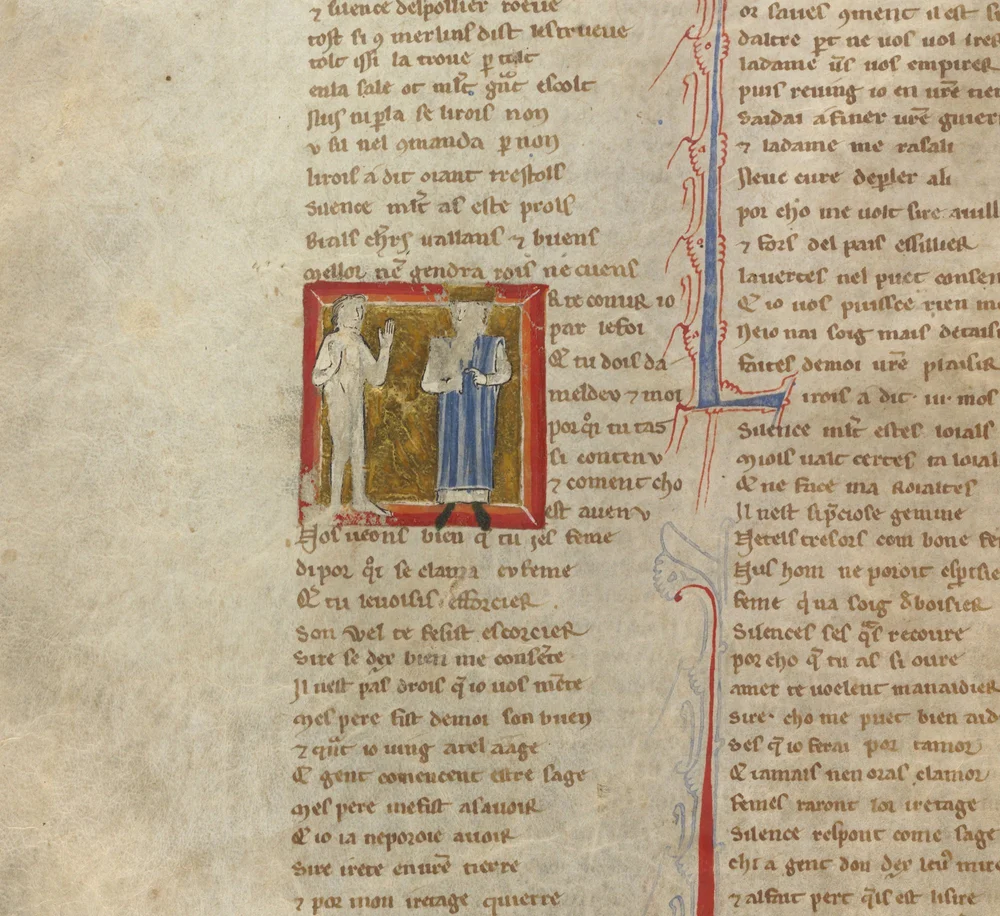 ⁊ silence despollier roeve
tost si 9 merlins dist les trueve
tolt issi la trove par tolt
enla sale ot mlt grant escolt
Nus ni parla se lirois non
v sil nel 9manda par non
lirois a dit oiant trestols
Silence mlt as este prols
Bials chrs vallans ⁊ buens
mellor nen gendra rois ne cuens
R te conivr io
par lefoi
Q tu dois da
meldev ⁊ moi
por qi tu tas
si contenv
⁊ coment cho
est avenv
Nos veons bien q tu ies feme
di por qi se clama evfeme
Q tu levoisis efforcier
Son vuel te fesist escorcier
Sire se dex bien me consente
Il nest pas drois q io vos mente
Mes pere fist demoi son buen
⁊ qnt io ving a tel aage
Q gent comencent estre sage
Mes pere mefist asavoir
Q io ia neporoie avoir
Sire irete en vre tierre
⁊ por mon iretage quierre
or saves 9ment il est
daltre part ne vos vol
ladame vos empirer
puis reving io en vre
Saidai afiner vre
⁊ ladame me rasali
Neuc cure deparler ali
por cho me volt sire
⁊ fors del pais essillier
lavertes nel puet
Q io vos puissce rien
Neio nai soig mais
faites demoi vre plaisir
Lirois a dit . iii . mos
Silence mlt estes loials
Miols valt certes ta
Q ne face ma roialtes
Il nest si prciose gemme
Netels tresors com bone
Nus hom ne poroit
feme qua soig dvoisier
Silences ses
por cho q tu as si ovre
amer te voelent manaidier
Sire . cho me puet bien
Des q io ferai por tamor
Q iamais nen oras clamor
femes raront lor iretage
Silence respont come sage
chi a gent don
⁊ alfait pert qils est lisire